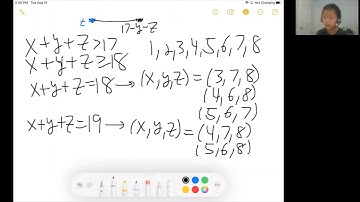 2:46 PM Tue Aug 10
Not Charging
17-y-z
x+y+z>17
1,2,3,4,5,6,7,8
x+y+z≥18
x+y+z=18→(x,y,z)=(3,7,8)
(4,6,8)
(5,6,7)
x+y+z=19→(x,y,z)=(4,7,8)
(5,6,8)